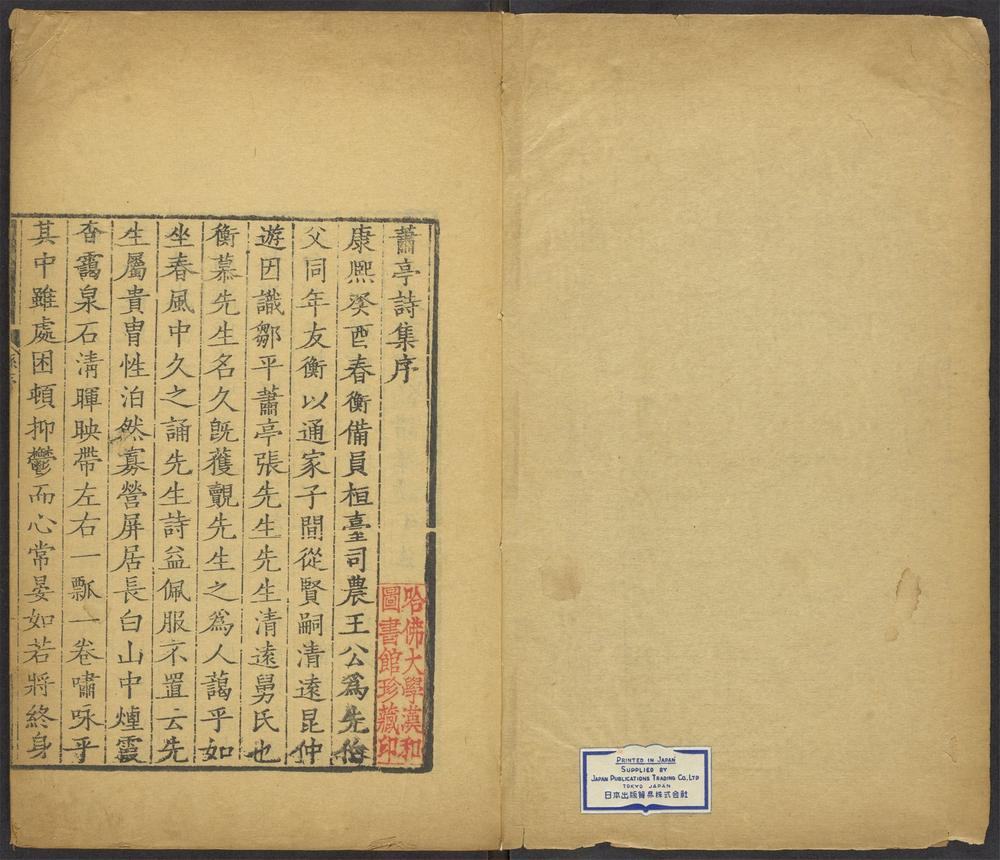 蕭亭詩集序
康熙癸酉春衡備員桓臺司農王公爲先伯
父同年友衡以通家子間從賢嗣清遠昆仲
遊因識鄒平蕭亭張先生先生清遠舅氏也
衡慕先生名久旣獲覿先生之爲人藹乎如
坐春風中久之誦先生詩益佩服不置云先
生屬貴冑性泊然寡營屏居長白山中煙霞
杳靄泉石淸暉映帶左右一瓢一卷嘯咏乎
其中雖處困頓抑鬱而心常晏如若將終身
哈佛大學漢和
圖書館珍藏印
PRINTED IN JAPAN
SUPPLIED BY
JAPAN PUBLICATIONS TRADING CO., LTD
TOKYO JAPAN
日本出版貿易株式会社